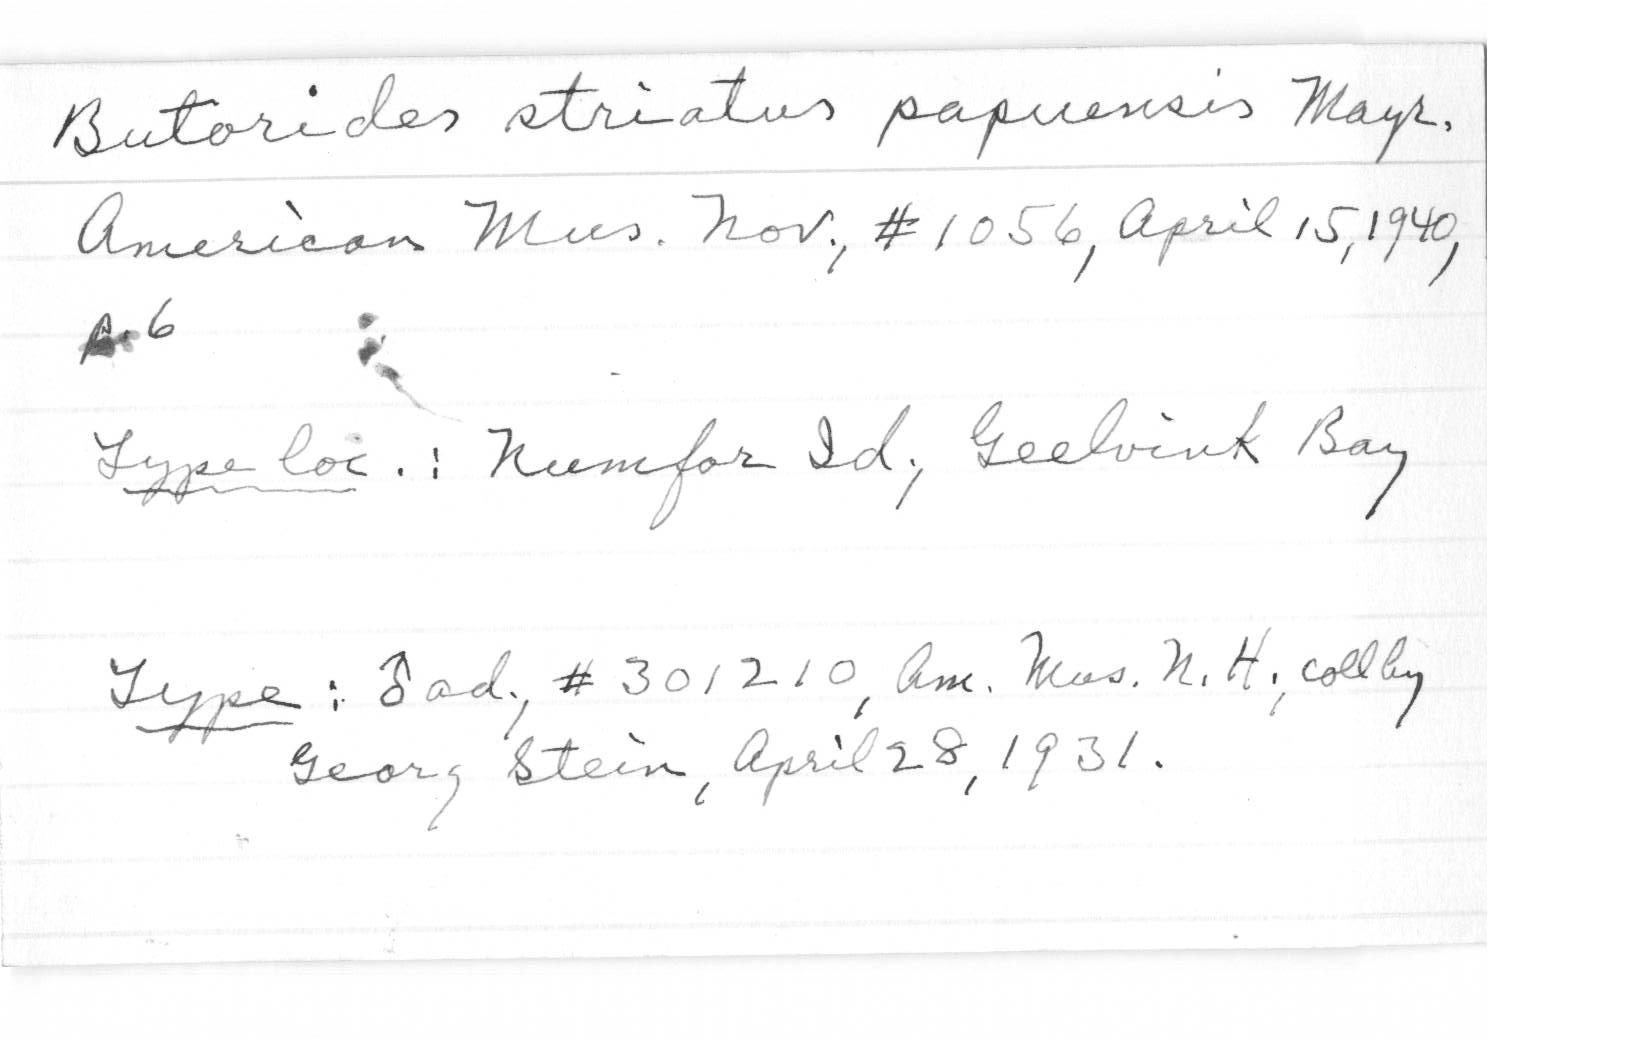 Butorides striatus papuensis Mayr.
American Mus. Nov., #1056, April 15, 1940,
p. 6
Type loc.: Numfor Id., Geelvink Bay
Type: ♂ ad., #301210, Am. Mus. N. H., coll by
Georg Stein, April 28, 1931.